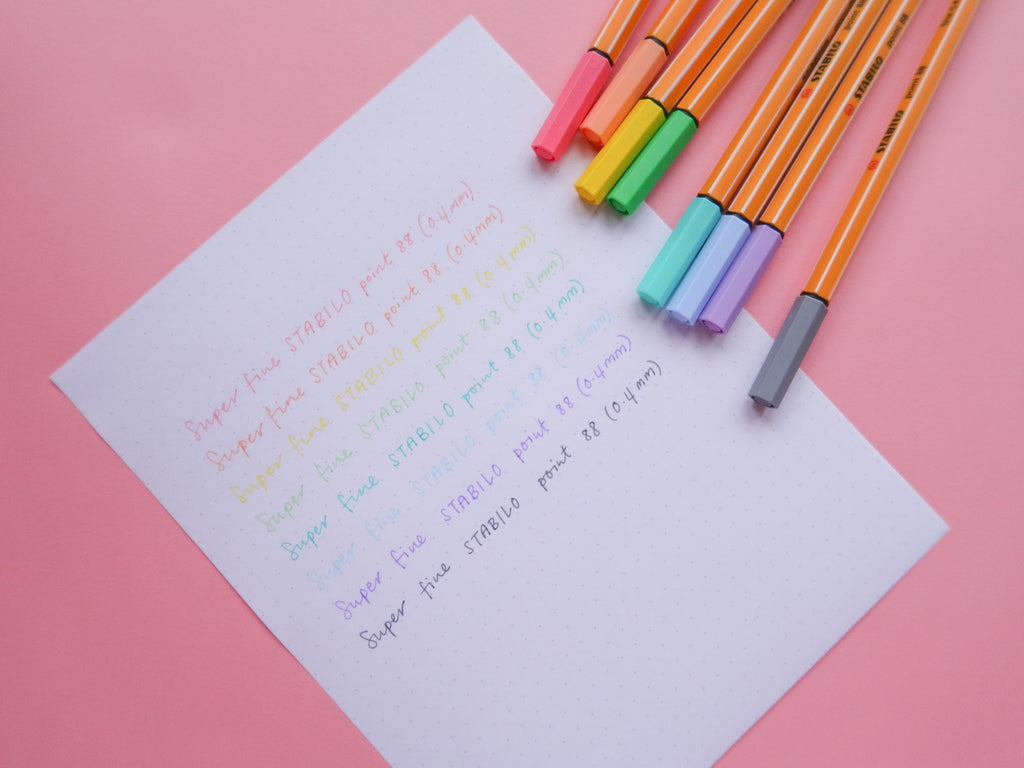 Super fine STABILO point 88 (0.4mm)
Super fine STABILO point 88 (0.4mm)
Super fine STABILO point 88 (0.4mm)
Super fine STABILO point 88 (0.4mm)
Super fine STABILO point 88 (0.4mm)
Super fine STABILO point 88 (0.4mm)
Super fine STABILO point 88 (0.4mm)
Super fine STABILO point 88 (0.4mm)
STABILO point 88
STABILO point 88
STABILO point 88